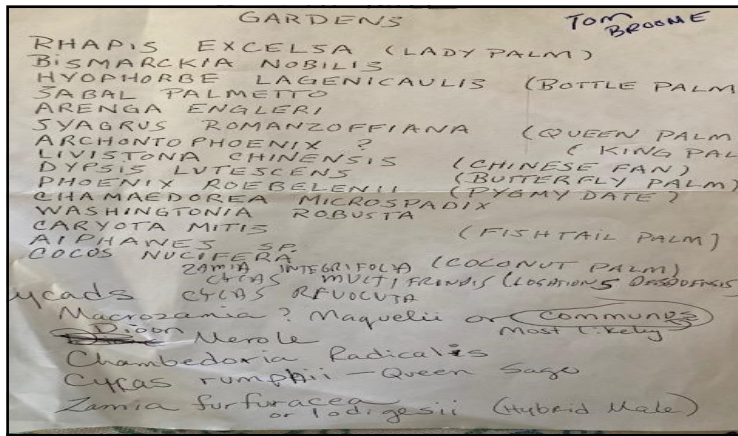 GARDENS
TOM BROOME
RHAPIS EXCELSA (LADY PALM)
BISMARCKIA NOBILIS
HYOPHORBE LAGENICAULIS (BOTTLE PALM
SABAL PALMETTO
ARENGA ENGLERI
SYAGRUS ROMANZOFFIANA (QUEEN PALM
ARCHONTOPHOENIX ? (KING PAL
LIVISTONA CHINENSIS (CHINESE FAN)
DYPSIS LUTESCENS (BUTTERFLY PALM)
PHOENIX ROEBELENII (PYGMY DATE)
CHAMAEDOREA MICROSPADIX
WASHINGTONIA ROBUSTA
CARYOTA MITIS (FISHTAIL PALM)
AIPHANES SP.
COCOS NUCIFERA (COCONUT PALM)
ZAMIA INTEGRIFOLIA
CYCAS MULTIFRONDIS
ycads CYCAS REVOLUTA
Macrozamia ? Maquelii or Communis
Most Likely
Dioon Merole
Chambedoria Radicalis
Cycas rumphii - Queen Sago
Zamia furfuracea
or lodigesii (Hybrid Male)